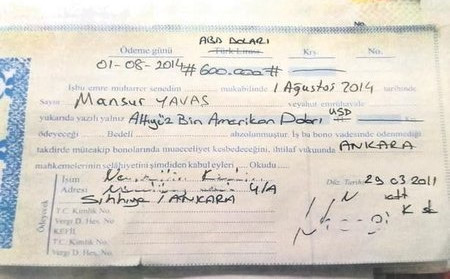 ABD DOLARI
Ödeme günü Türk Lirası Krş. No.
01-08-2014 #600.000#
İşbu emre muharrer senedim mukabilinde 1 Ağustos 2014 tarihinde
Sayın Mansur YAVAŞ veyahut emrühavale
yukarıda yazılı yalnız Altıyüz Bin Amerikan Doları USD
ödeyeceğim Bedeli ahzolunmuştur. İş bu bono vadesinde ödenmediği
takdirde müteakip bonolarında muacceliyet kesbedeceğini, ihtilaf vukuunda ANKARA
mahkemelerinin selâhiyetini şimdiden kabul eyleri Okudu
İsim
Adresi 4/A Düz. Tarihi 29.03.2011
Sıhhiye / ANKARA
Ödeyecek
T.C. Kimlik No.
Vergi D. Hes. No.
KEFİL
T.C. Kimlik No.
Vergi D. Hes. No.